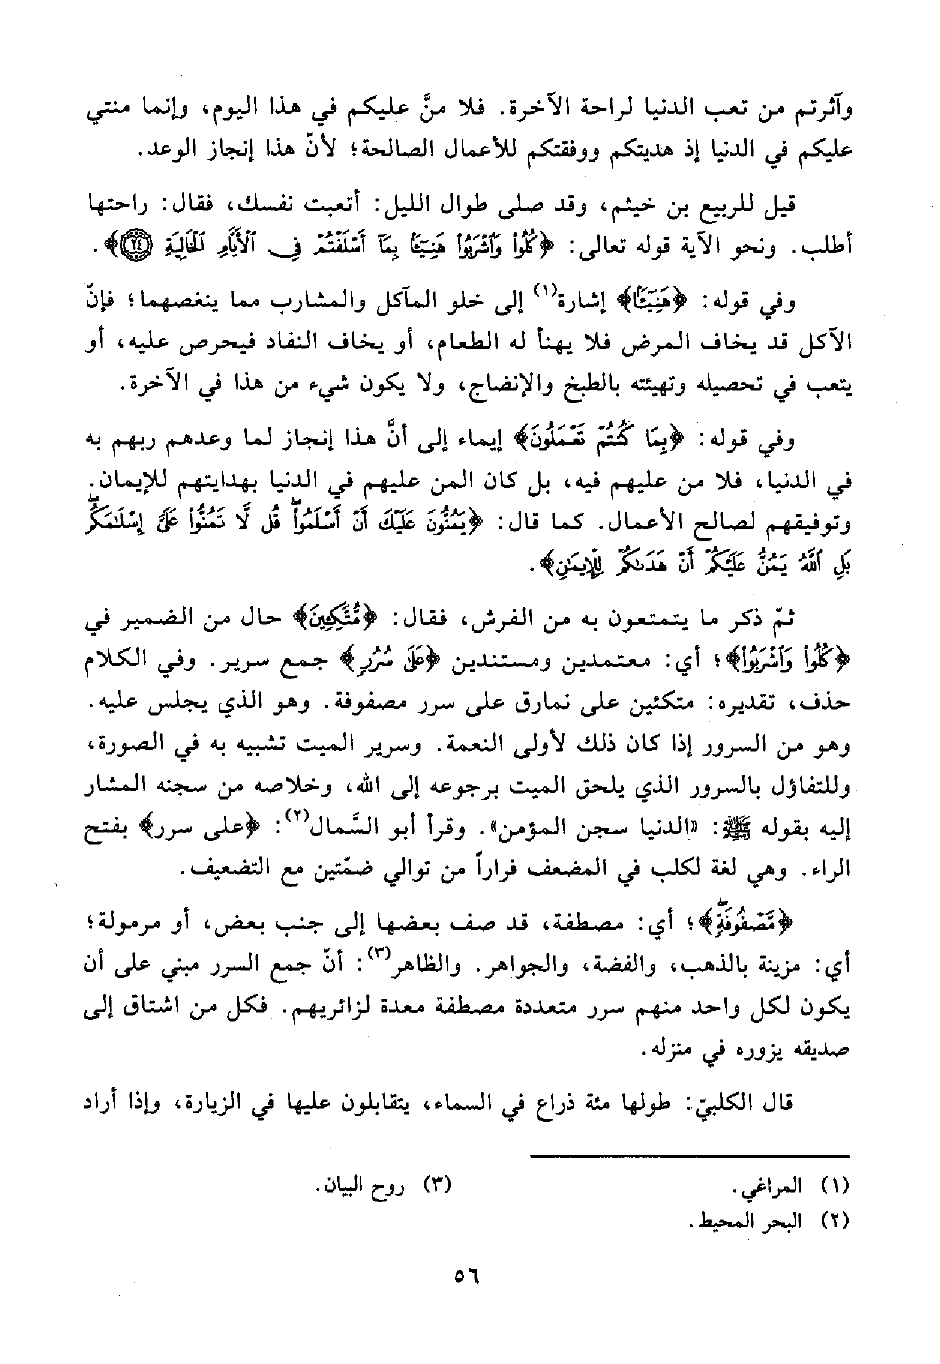 وآثرتم من تعب الدنيا لراحة الآخرة. فلا منَّ عليكم في هذا اليوم، وإنما منتي
عليكم في الدنيا إذ هديتكم ووفقتكم للأعمال الصالحة؛ لأنّ هذا إنجاز الوعد.
قيل للربيع بن خيثم، وقد صلى طوال الليل: أتعبت نفسك، فقال: راحتها
أطلب. ونحو الآية قوله تعالى: ﴿كُلُوا۟ وَٱشْرَبُوا۟ هَنِيٓـًٔۢا بِمَآ أَسْلَفْتُمْ فِى ٱلْأَيَّامِ ٱلْخَالِيَةِ ٢٤﴾.
وفي قوله: ﴿هَنِيٓـًٔا﴾ إشارة(١) إلى خلو المآكل والمشارب مما ينغصهما؛ فإنّ
الآكل قد يخاف المرض فلا يهنأ له الطعام، أو يخاف النفاد فيحرص عليه، أو
يتعب في تحصيله وتهيئته بالطبخ والإنضاج، ولا يكون شيء من هذا في الآخرة.
وفي قوله: ﴿بِمَا كُنتُمْ تَعْمَلُونَ﴾ إيماء إلى أنَّ هذا إنجاز لما وعدهم ربهم به
في الدنيا، فلا من عليهم فيه، بل كان المن عليهم في الدنيا بهدايتهم للإيمان.
وتوفيقهم لصالح الأعمال. كما قال: ﴿يَمُنُّونَ عَلَيْكَ أَنْ أَسْلَمُوا۟ۖ قُل لَّا تَمُنُّوا۟ عَلَىَّ إِسْلَـٰمَكُمۖ
بَلِ ٱللَّهُ يَمُنُّ عَلَيْكُمْ أَنْ هَدَىٰكُمْ لِلْإِيمَـٰنِ﴾.
ثمّ ذكر ما يتمتعون به من الفرش، فقال: ﴿مُتَّكِـِٔينَ﴾ حال من الضمير في
﴿كُلُوا۟ وَٱشْرَبُوا۟﴾؛ أي: معتمدين ومستندين ﴿عَلَىٰ سُرُرٍ﴾ جمع سرير. وفي الكلام
حذف، تقديره: متكئين على نمارق على سرر مصفوفة. وهو الذي يجلس عليه.
وهو من السرور إذا كان ذلك لأولى النعمة. وسرير الميت تشبيه به في الصورة،
وللتفاؤل بالسرور الذي يلحق الميت برجوعه إلى الله، وخلاصه من سجنه المشار
إليه بقوله ﷺ: «الدنيا سجن المؤمن». وقرأ أبو السَّمال(٢): ﴿على سرر﴾ بفتح
الراء. وهي لغة لكلب في المضعف فراراً من توالي ضمّتين مع التضعيف.
﴿مَّصْفُوفَةٍۖ﴾؛ أي: مصطفة، قد صف بعضها إلى جنب بعض، أو مرمولة؛
أي: مزينة بالذهب، والفضة، والجواهر. والظاهر(٣): أنّ جمع السرر مبني على أن
يكون لكل واحد منهم سرر متعددة مصطفة معدة لزائريهم. فكل من اشتاق إلى
صديقه يزوره في منزله.
قال الكلبيّ: طولها مئة ذراع في السماء، يتقابلون عليها في الزيارة، وإذا أراد
(١) المراغي.
(٢) البحر المحيط.
(٣) روح البيان.
٥٦